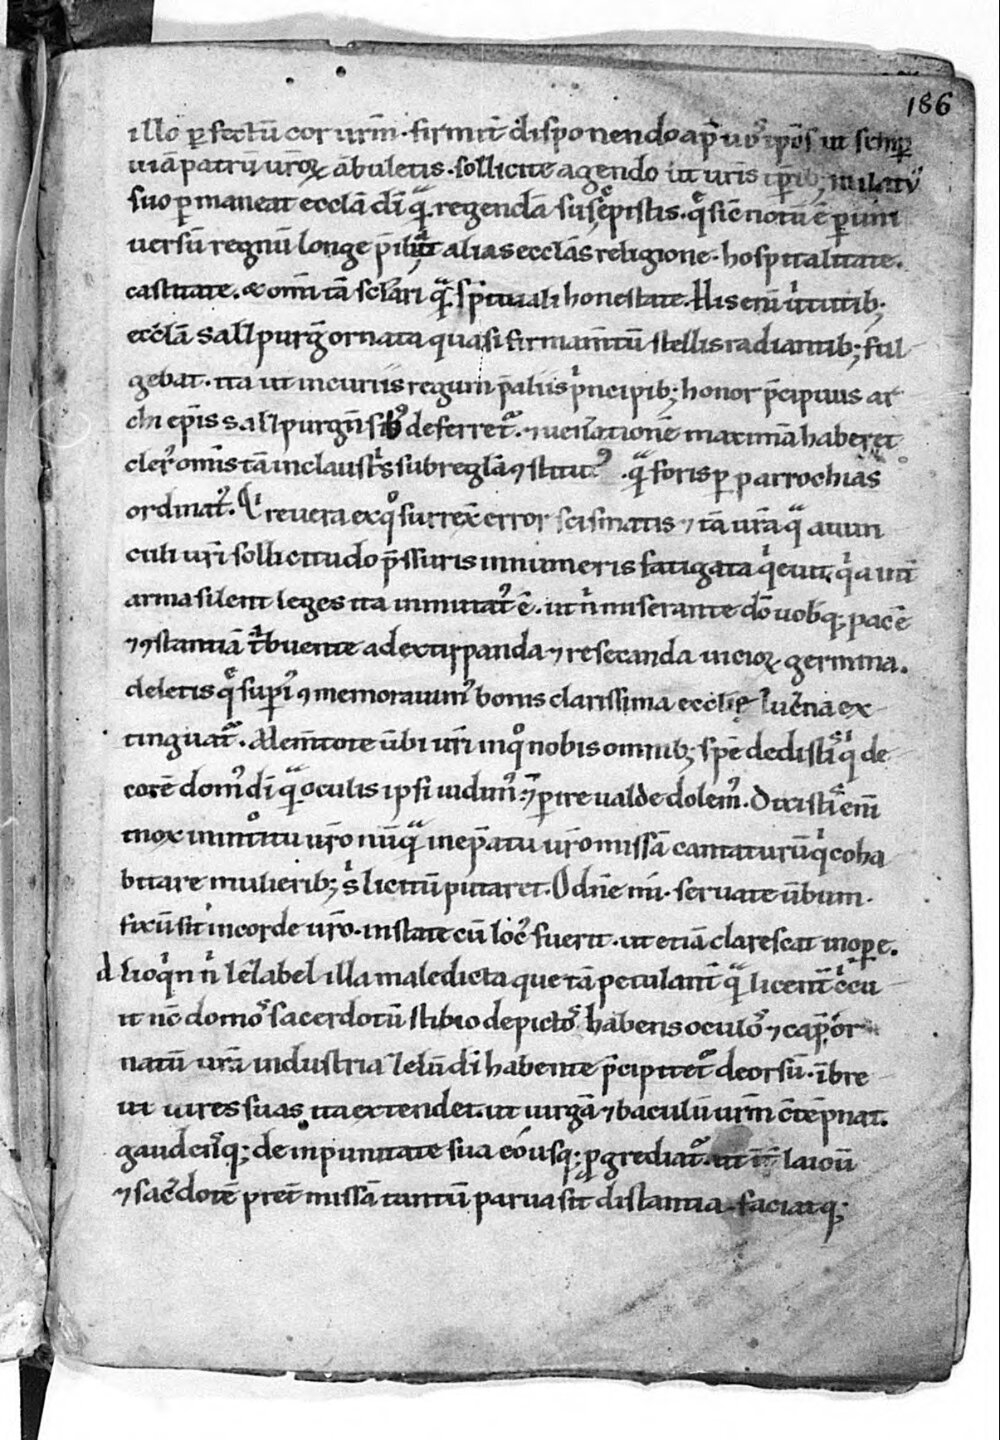 186
illo ꝑfectū cor urm̄. firmit̄ disponendo ap̄ uos ipōs ut semꝑ
uiā patrū urōꝝ ābuletis. sollicite agendo ut uris
suo ꝑmaneat ecclā di quā regendā suscepistis. quę sic notū ē ꝑ uni
uersū regnū longe p̄ alias ecclās religione. hospitalitate.
castitate. & om̄i tā sclari quā sp̄irituali honestate. His eni uirtutib;
ecclā Salzpurḡ ornata quasi firmam̄tū stellis radiantib; ful
gebat. ita ut in curiis regum p̄ aliis pͥncipib; honor p̄cipuus ar
chiep̄is salzpurgn̄sib; deferret᷑. ⁊ uenerationē maximā haberet
cler᷒ om̄is tā in claustris sub reglā ꝯstitut᷒. quā foris ꝑ parrochias
ordinat᷒. Qi reuera ex qͦ surrex̄ error scismatis ⁊ tā urā quā auun
culi uri sollicitudo p̄ssuris innumeris fatigata qͥeuit. qͥa ut̄
arma silent leges ita inmutat᷒ ē. ut nͥ miserante dō uobisq; pacē
⁊ ꝯstantiā tͥbuente ad extirpanda ⁊ resecanda uicioꝝ germina.
deletis quę supͥ᷒ ꝯmemorauim᷒ bonis clarissima ecclię lucerna ex
tinguat᷑. Mem̄tote ūbi uri in qͦ nobis omnib; spē dedistis qͥ de
corē dom᷒ di quā oculis ipsi uidim᷒ ꝑire ualde dolem᷒. Dixistis eni
mox in introitu uro nūquā in ep̄atu uro missā cantaturū qͥ coha
bitare mulierib; sͥ licitū putaret. O dn̄e mi. seruate ūbum.
fixū sit in corde uro. instate cū loc᷒ fuerit. ut etiā clarescat in opere.
Alioqͥn nͥ Iezabel illa maledicta que tā petulant̄ quā licent̄ cͥcu
it nc̄ domos sacerdotū stibio depictos habens oculos ⁊ cap᷒ or
natū urā industria zelū di habente p̄cipitet᷑ deorsū. in bre
ui uires suas ita extendet. ut uirgā ⁊ baculū urm̄ cōtēpnat.
gaudensq; de inpunitate sua eousq; ꝓgrediat᷑. ut int̄ laicū
⁊ sac̄dotē pret̄ missā tantū parua sit distantia. faciatq;